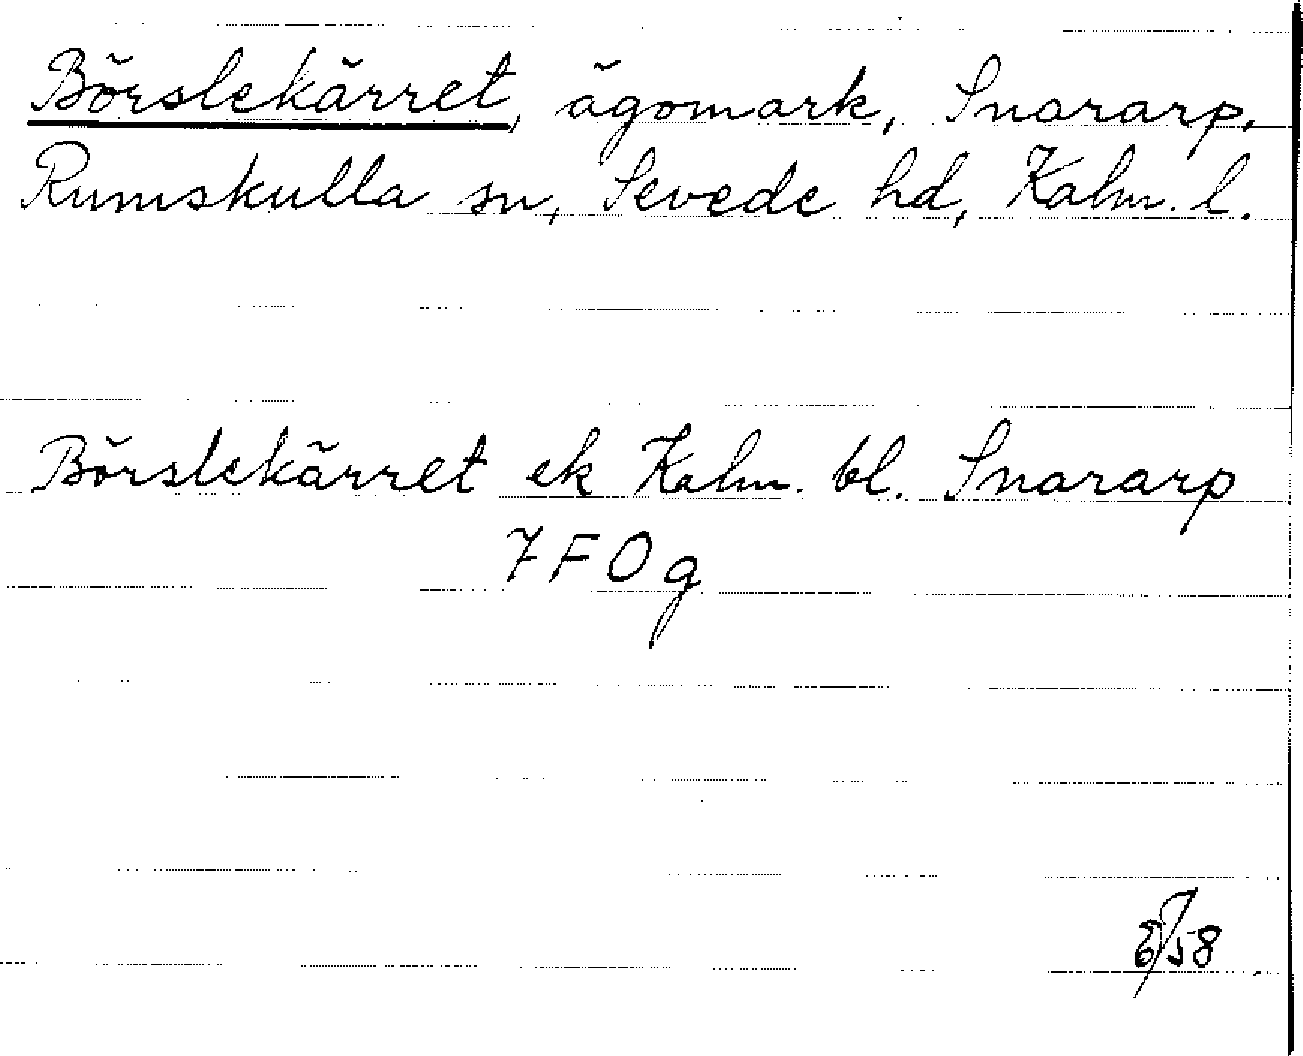 Börslekärret, ägomark, Snararp,
Rumskulla sn, Sevede hd, Kalm. l.
Börslekärret ek Kalm. bl. Snararp
7 F 0 g